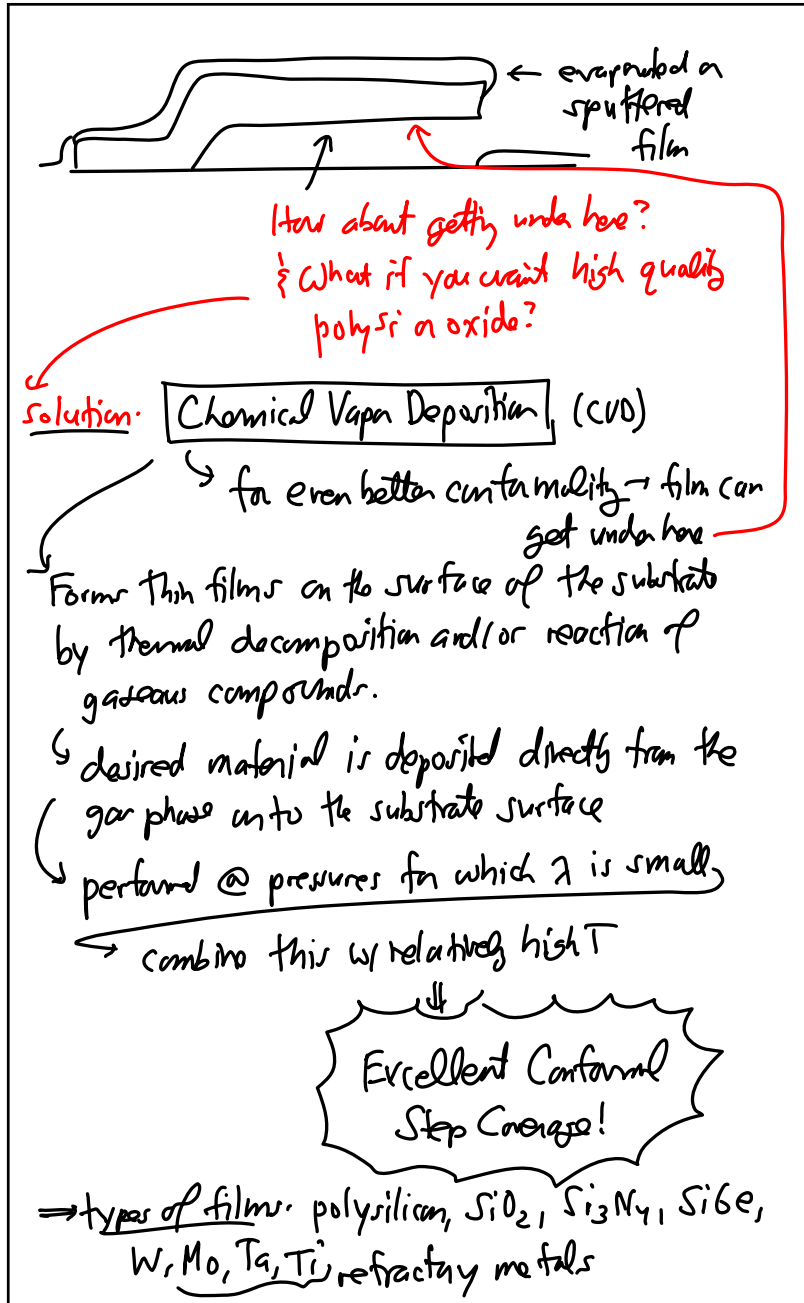 ← evaporated or
sputtered
film
How about getting under here?
& What if you want high quality
polysi or oxide?
solution. Chemical Vapor Deposition (CVD)
↳ for even better conformality → film can
get under here
Forms thin films on the surface of the substrate
by thermal decomposition and/or reaction of
gaseous compounds.
↳ desired material is deposited directly from the
gas phase onto the substrate surface
↳ performed @ pressures for which λ is small
↳ combine this w/ relatively high T
⇓
Excellent Conformal
Step Coverage!
⇒ types of films. polysilicon, SiO₂, Si₃N₄, SiGe,
W, Mo, Ta, Ti, refractory metals